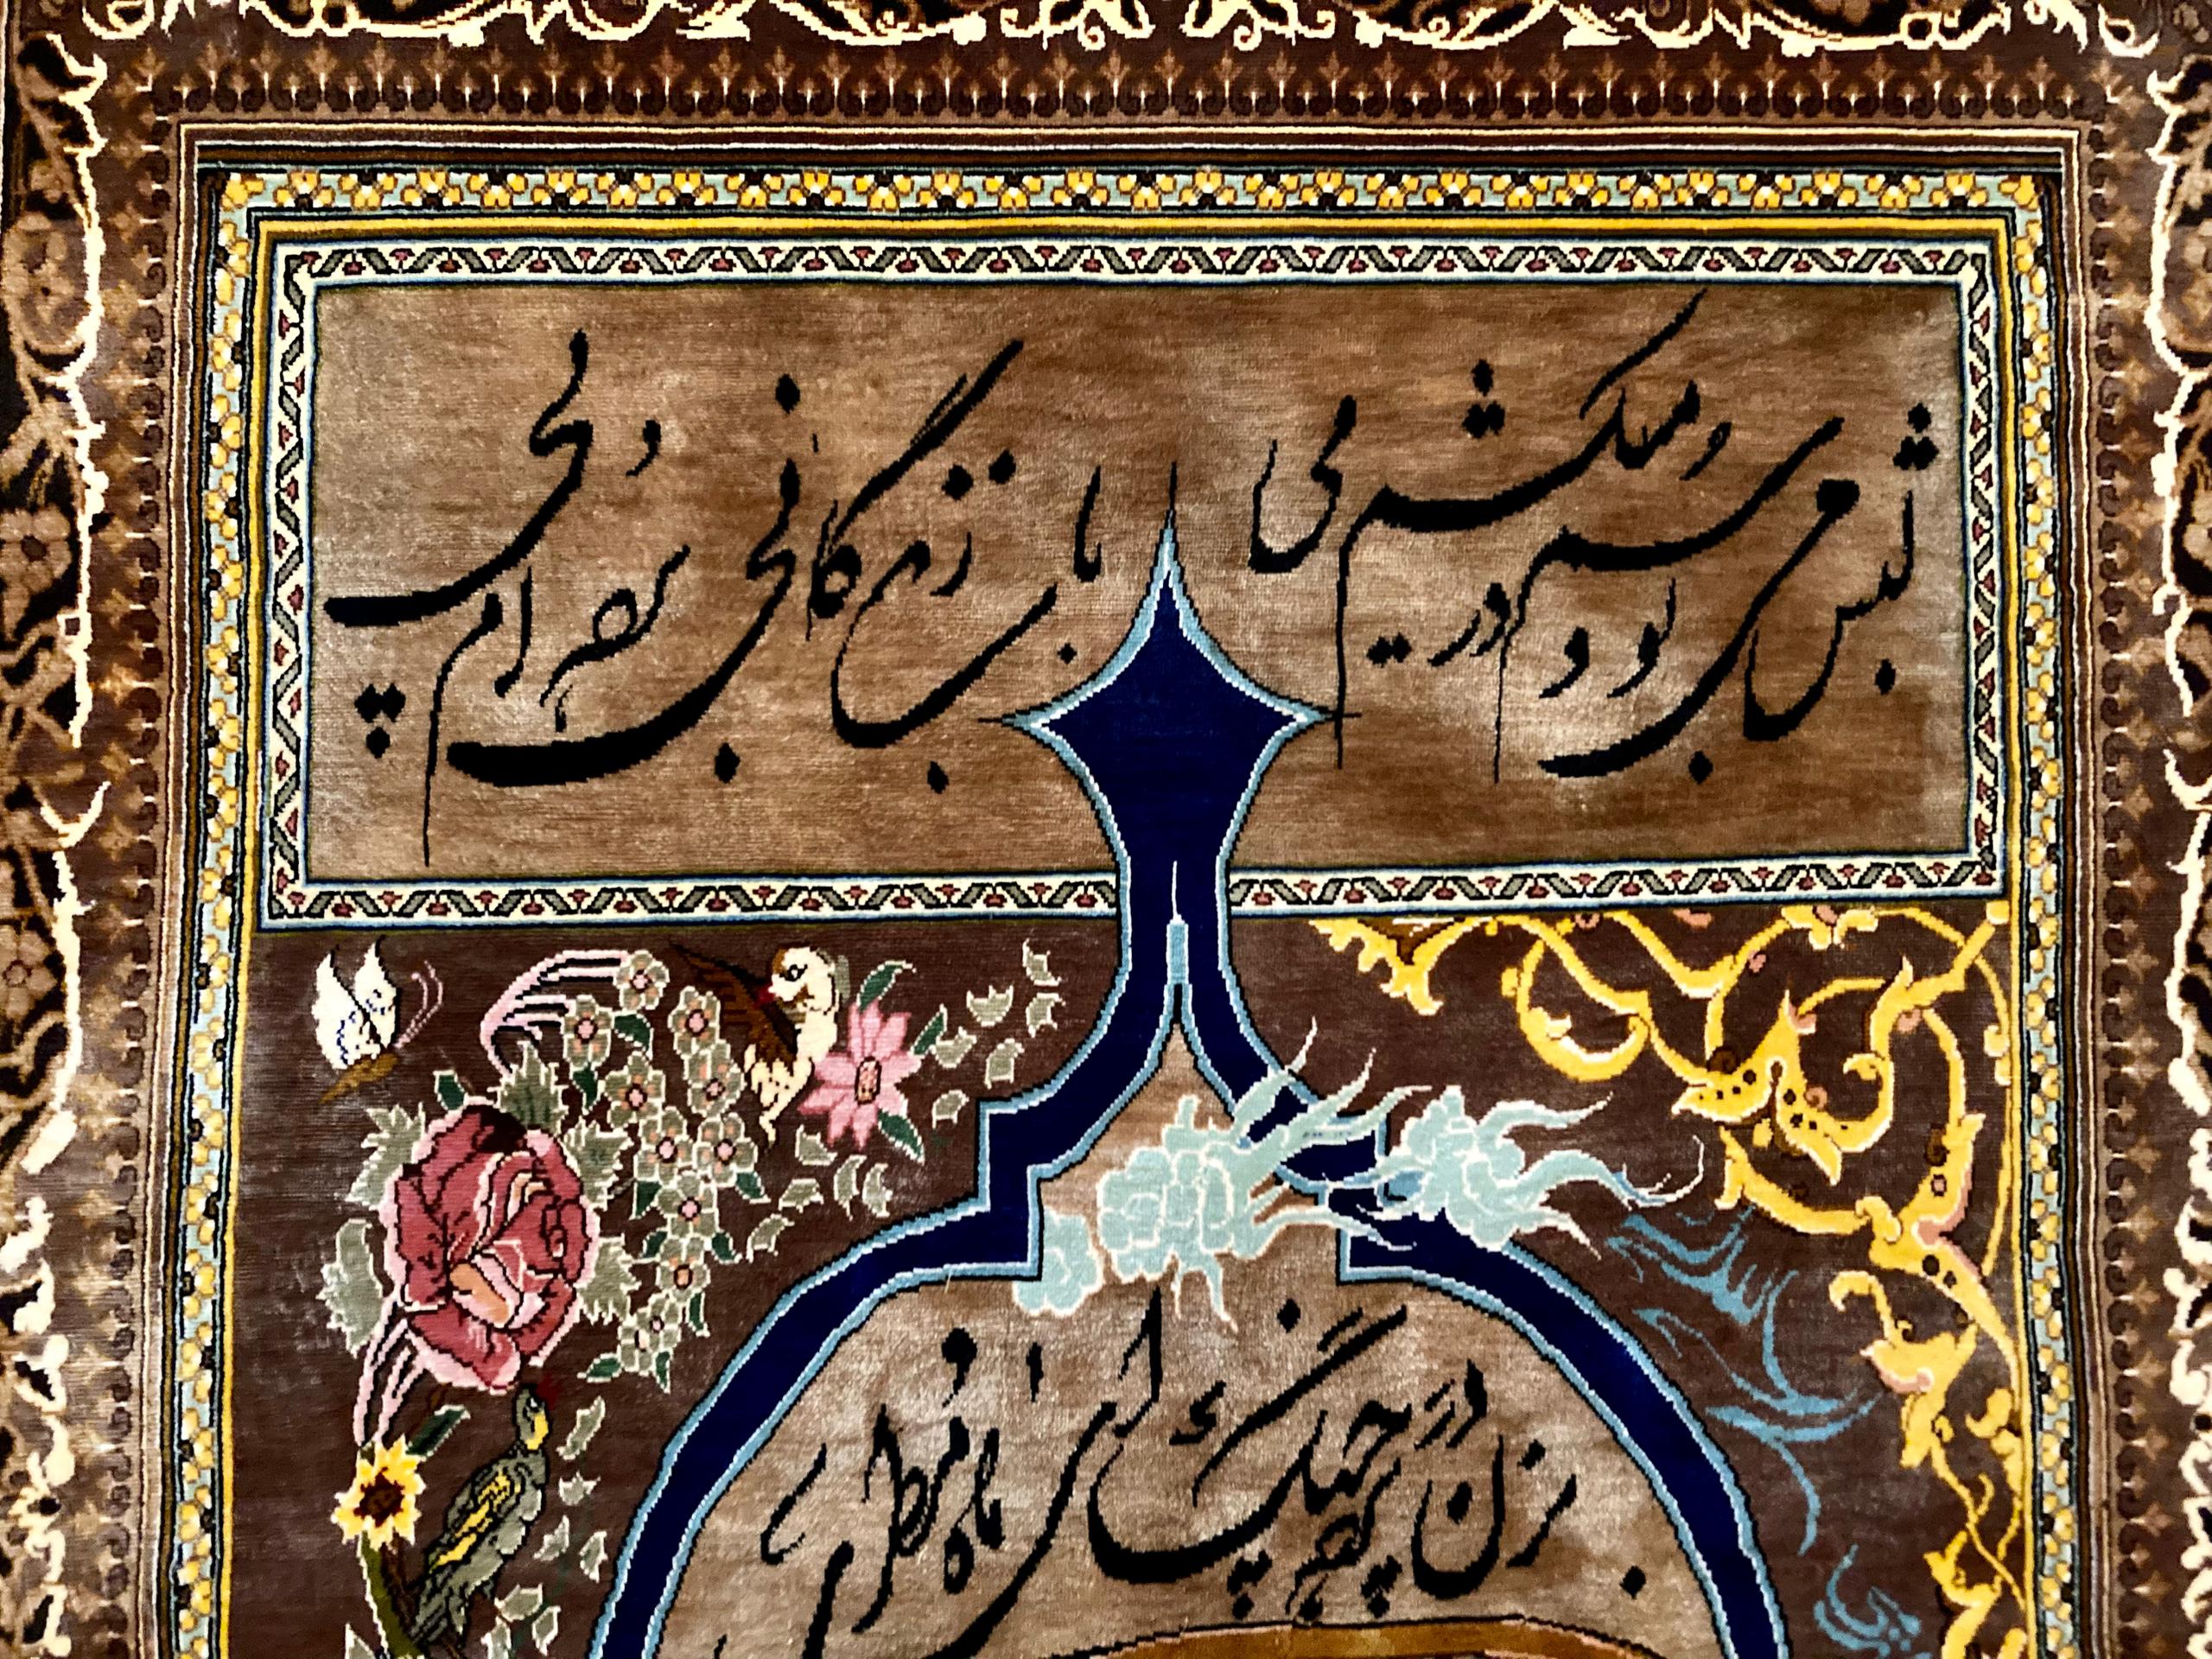 لبش می بوسم و در میکشم می
بآب زندگانی برده ام پی
بزن در پرده چنگ ای ماه مطرب